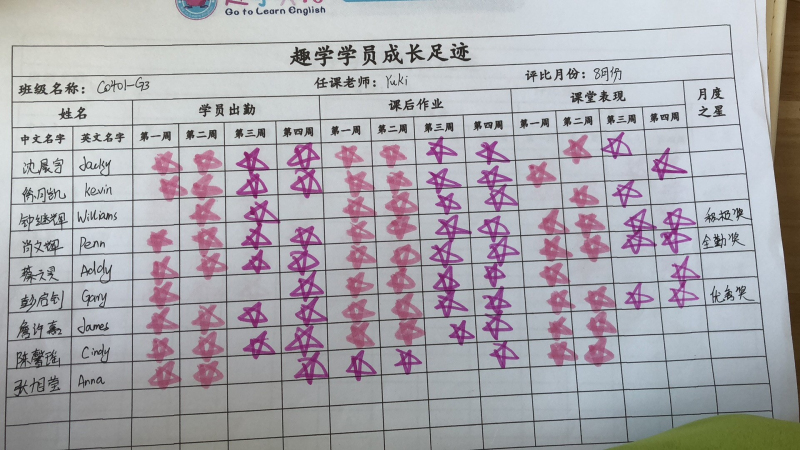 Go to Learn English
趣学学员成长足迹
班级名称: C0401-G3 任课老师: Yuki 评比月份: 8月份
姓名 学员出勤 课后作业 课堂表现 月度之星
中文名字 英文名字 第一周 第二周 第三周 第四周 第一周 第二周 第三周 第四周 第一周 第二周 第三周 第四周
沈晨宇 Jacky
Kevin
钟继辉 Williams
尚文辉 Penn 积极奖
蔡文昊 Addy 全勤奖
彭启钊 Gary
詹许嘉 James 优秀奖
陈馨瑶 Cindy
狄旭莹 Anna